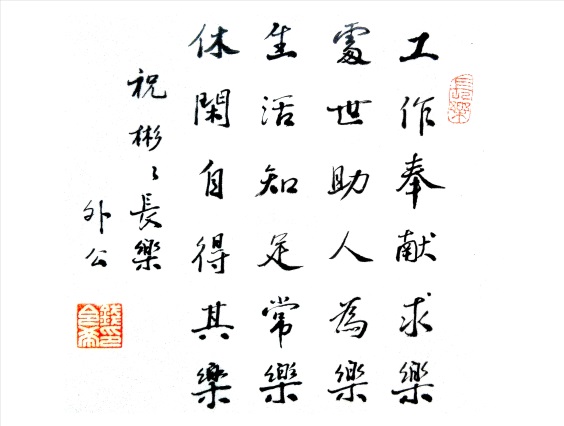 長樂
工作奉献求樂
處世助人為樂
生活知足常樂
休閑自得其樂
祝彬彬長樂
外公
錢印令希